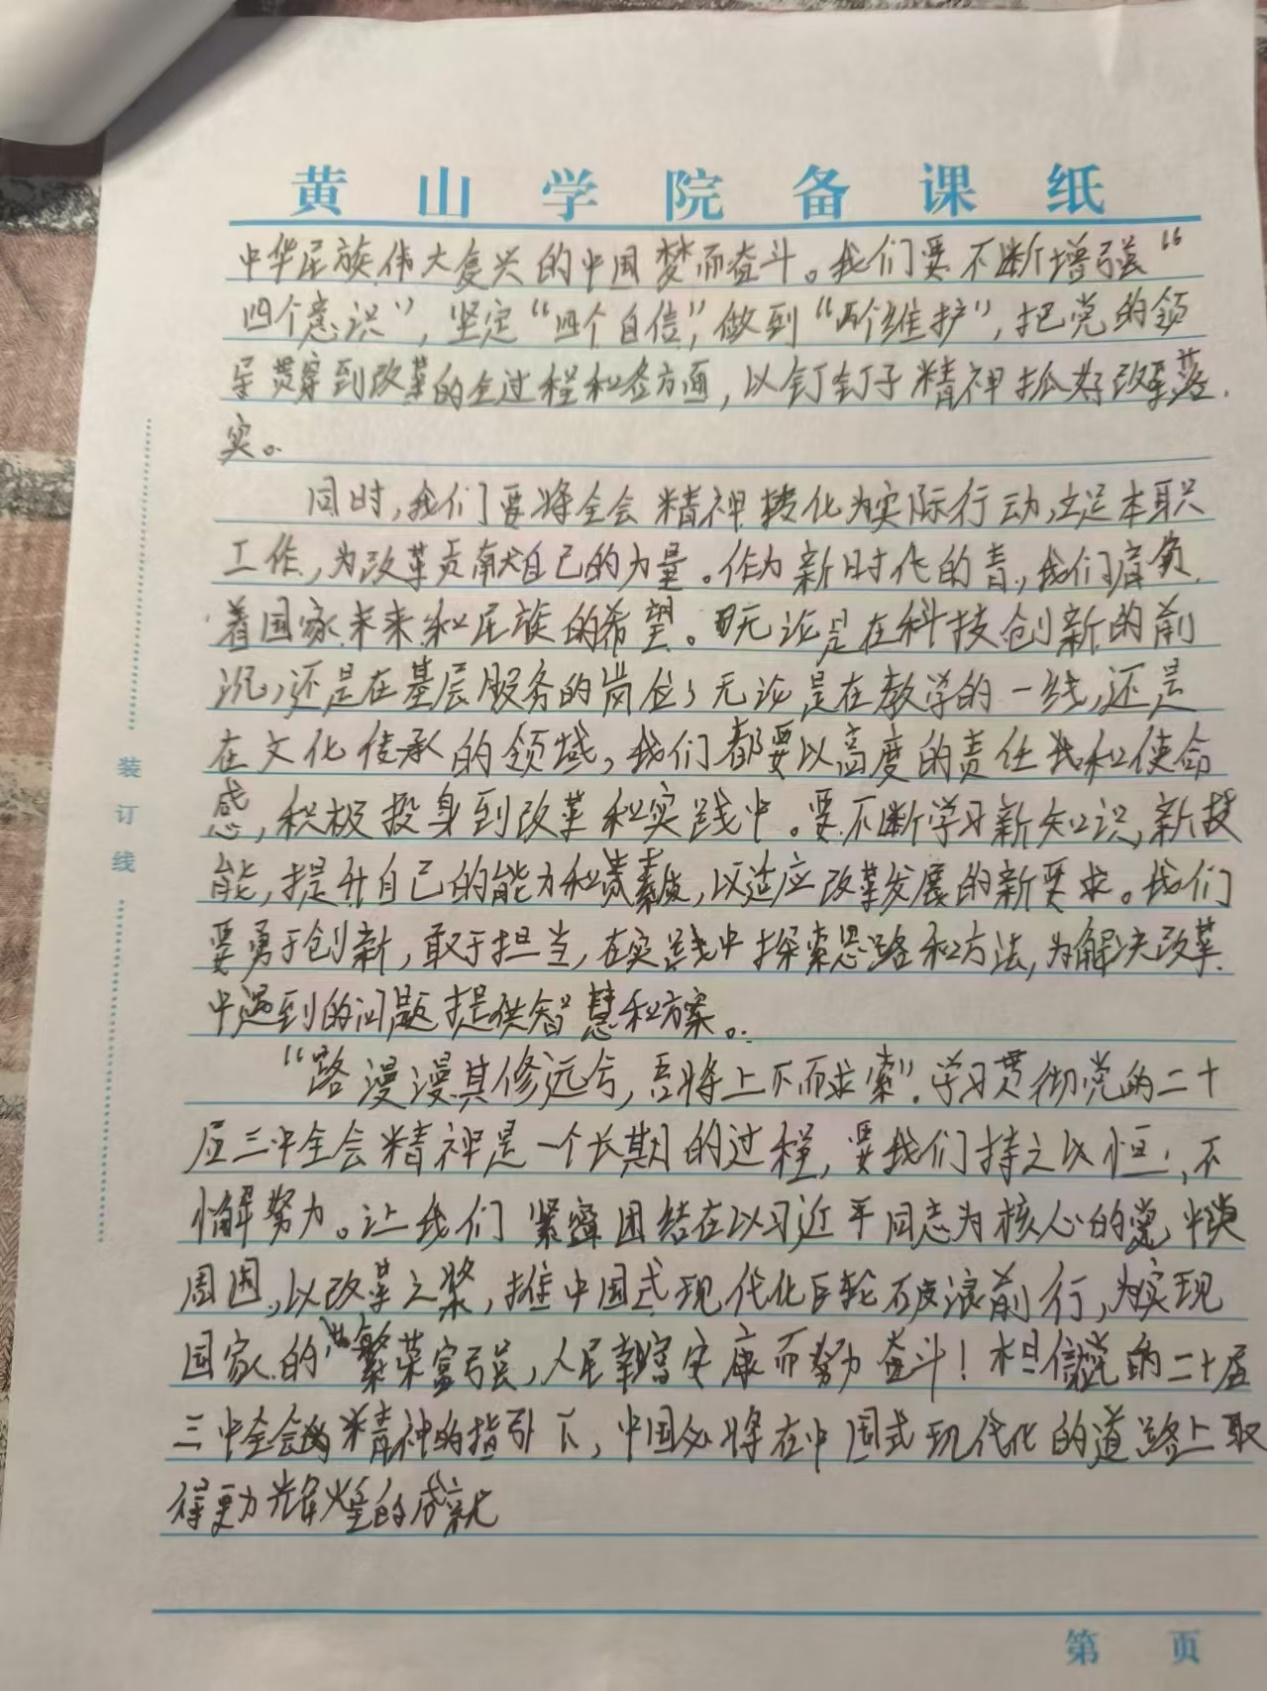 黄山学院备课纸
中华民族伟大复兴的中国梦而奋斗。我们要不断增强“
四个意识”，坚定“四个自信”，做到“两个维护”，把党的领
导贯穿到改革的全过程和各方面，以钉钉子精神抓好改革落
实。
同时，我们要将全会精神转化为实际行动，立足本职
工作，为改革贡献自己的力量。作为新时代的青，我们肩负
着国家未来和民族的希望。无论是在科技创新的前
沉，还是在基层服务的岗位，无论是在教学的一线，还是
在文化传承的领域，我们都要以高度的责任我和使命
感，积极投身到改革和实践中。要不断学习新知识，新技
能，提升自己的能力和素质，以适应改革发展的新要求。我们
要勇于创新，敢于担当，在实践中探索思路和方法，为解决改革
中遇到的问题提供智慧和方案。
“路漫漫其修远兮，吾将上下而求索”。学习贯彻党的二十
届三中全会精神是一个长期的过程，要我们持之以恒，不
懈努力。让我们紧密团结在以习近平同志为核心的党中央
周围，以改革之桨，推中国式现代化巨轮破浪前行，为实现
国家的繁荣富强，人民幸福安康而努力奋斗！相信党的二十届
三中全会的精神的指引下，中国必将在中国式现代化的道路上取
得更为辉煌的成就
装订线
第 页